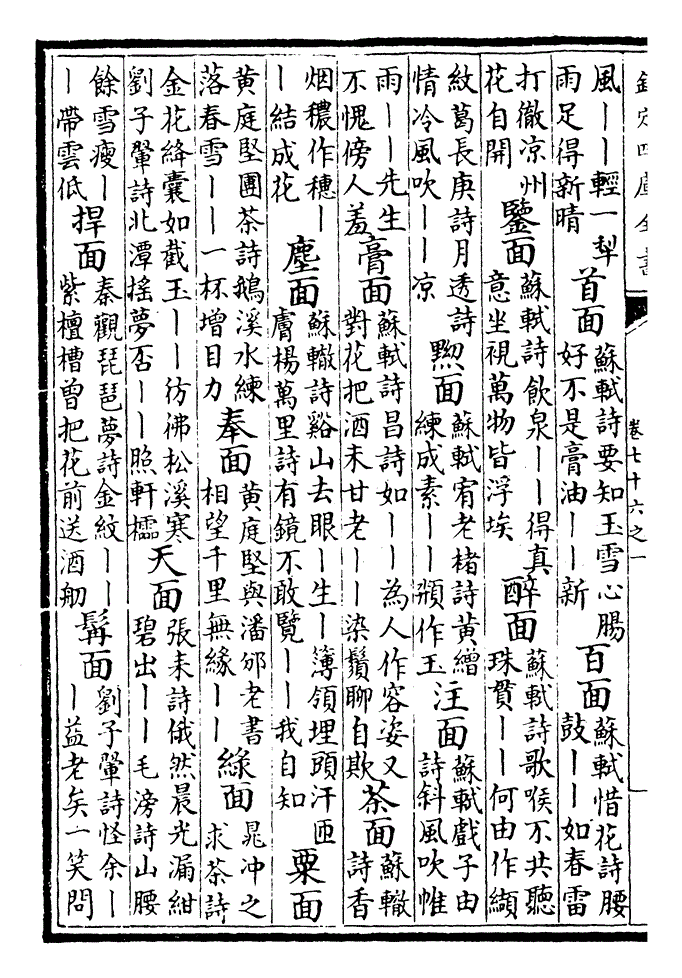 欽定四庫全書
卷七十六之一
風丨丨輕一犁雨足得新晴 首面 蘇軾詩要知玉雪心腸好不是膏油丨丨新 百面 蘇軾惜花詩腰鼓丨丨如春雷
打徹凉州花自開 鑒面 蘇軾詩飲泉丨丨得真意坐視萬物皆浮埃 醉面 蘇軾詩歌喉不共聽珠貫丨丨何由作纈
紋葛長庚詩月透詩情冷風吹丨丨凉 黦面 蘇軾宥老楮詩黄繒練成素丨丨頮作玉 注面 蘇軾戲子由詩斜風吹帷
雨丨丨先生不愧傍人羞 膏面 蘇軾詩昌詩如丨丨為人作容姿又對花把酒未甘老丨丨染鬚聊自欺 茶面 蘇轍詩香
烟穠作穗丨丨結成花 塵面 蘇轍詩谿山去眼丨生丨簿領埋頭汗匝膚楊萬里詩有鏡不敢覽丨丨我自知 粟面
黄庭堅團茶詩鵝溪水練落春雪丨丨一杯增目力 奉面 黄庭堅與潘邠老書相望千里無緣丨丨 綠面 晁冲之求茶詩
金花絳囊如截玉丨丨彷彿松溪寒劉子翬詩北潭揺夢否丨丨照軒櫺 天面 張耒詩俄然晨光漏紺碧出丨丨毛滂詩山腰
餘雪瘦丨丨帶雲低 捍面 秦觀琵琶夢詩金紋丨丨紫檀槽曾把花前送酒舠 髯面 劉子翬詩怪余丨丨益老矣一笑問